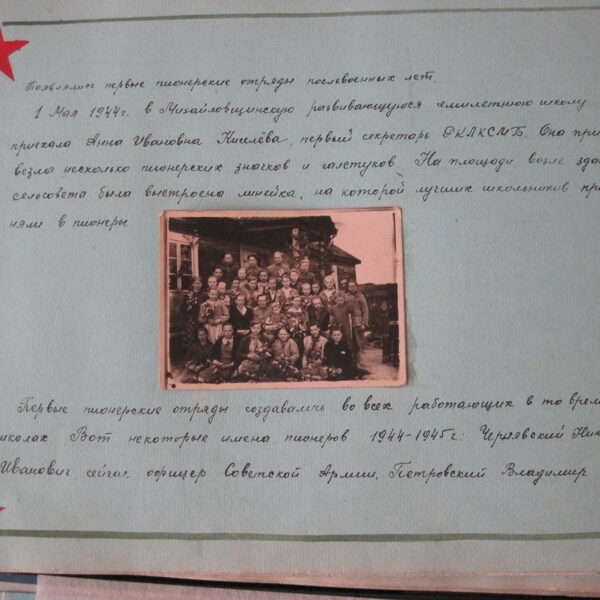 Появлялись первые пионерские отряды послевоенных лет.
1 Мая 1944г. в Михайловщинскую развивающуюся семилетнюю школу
приехала Анна Ивановна Киселёва, первый секретарь РКЛКСМБ. Она при
везла несколько пионерских значков и галстуков. На площади возле зда
сельсовета была выстроена линейка, на которой лучших школьников при
няли в пионеры
Первые пионерские отряды создавались во всех работающих в то врем
школах Вот некоторые имена пионеров 1944-1945г: Чернявский Ник
Иванович, сейчас офицер Советской Армии, Петровский Владимир